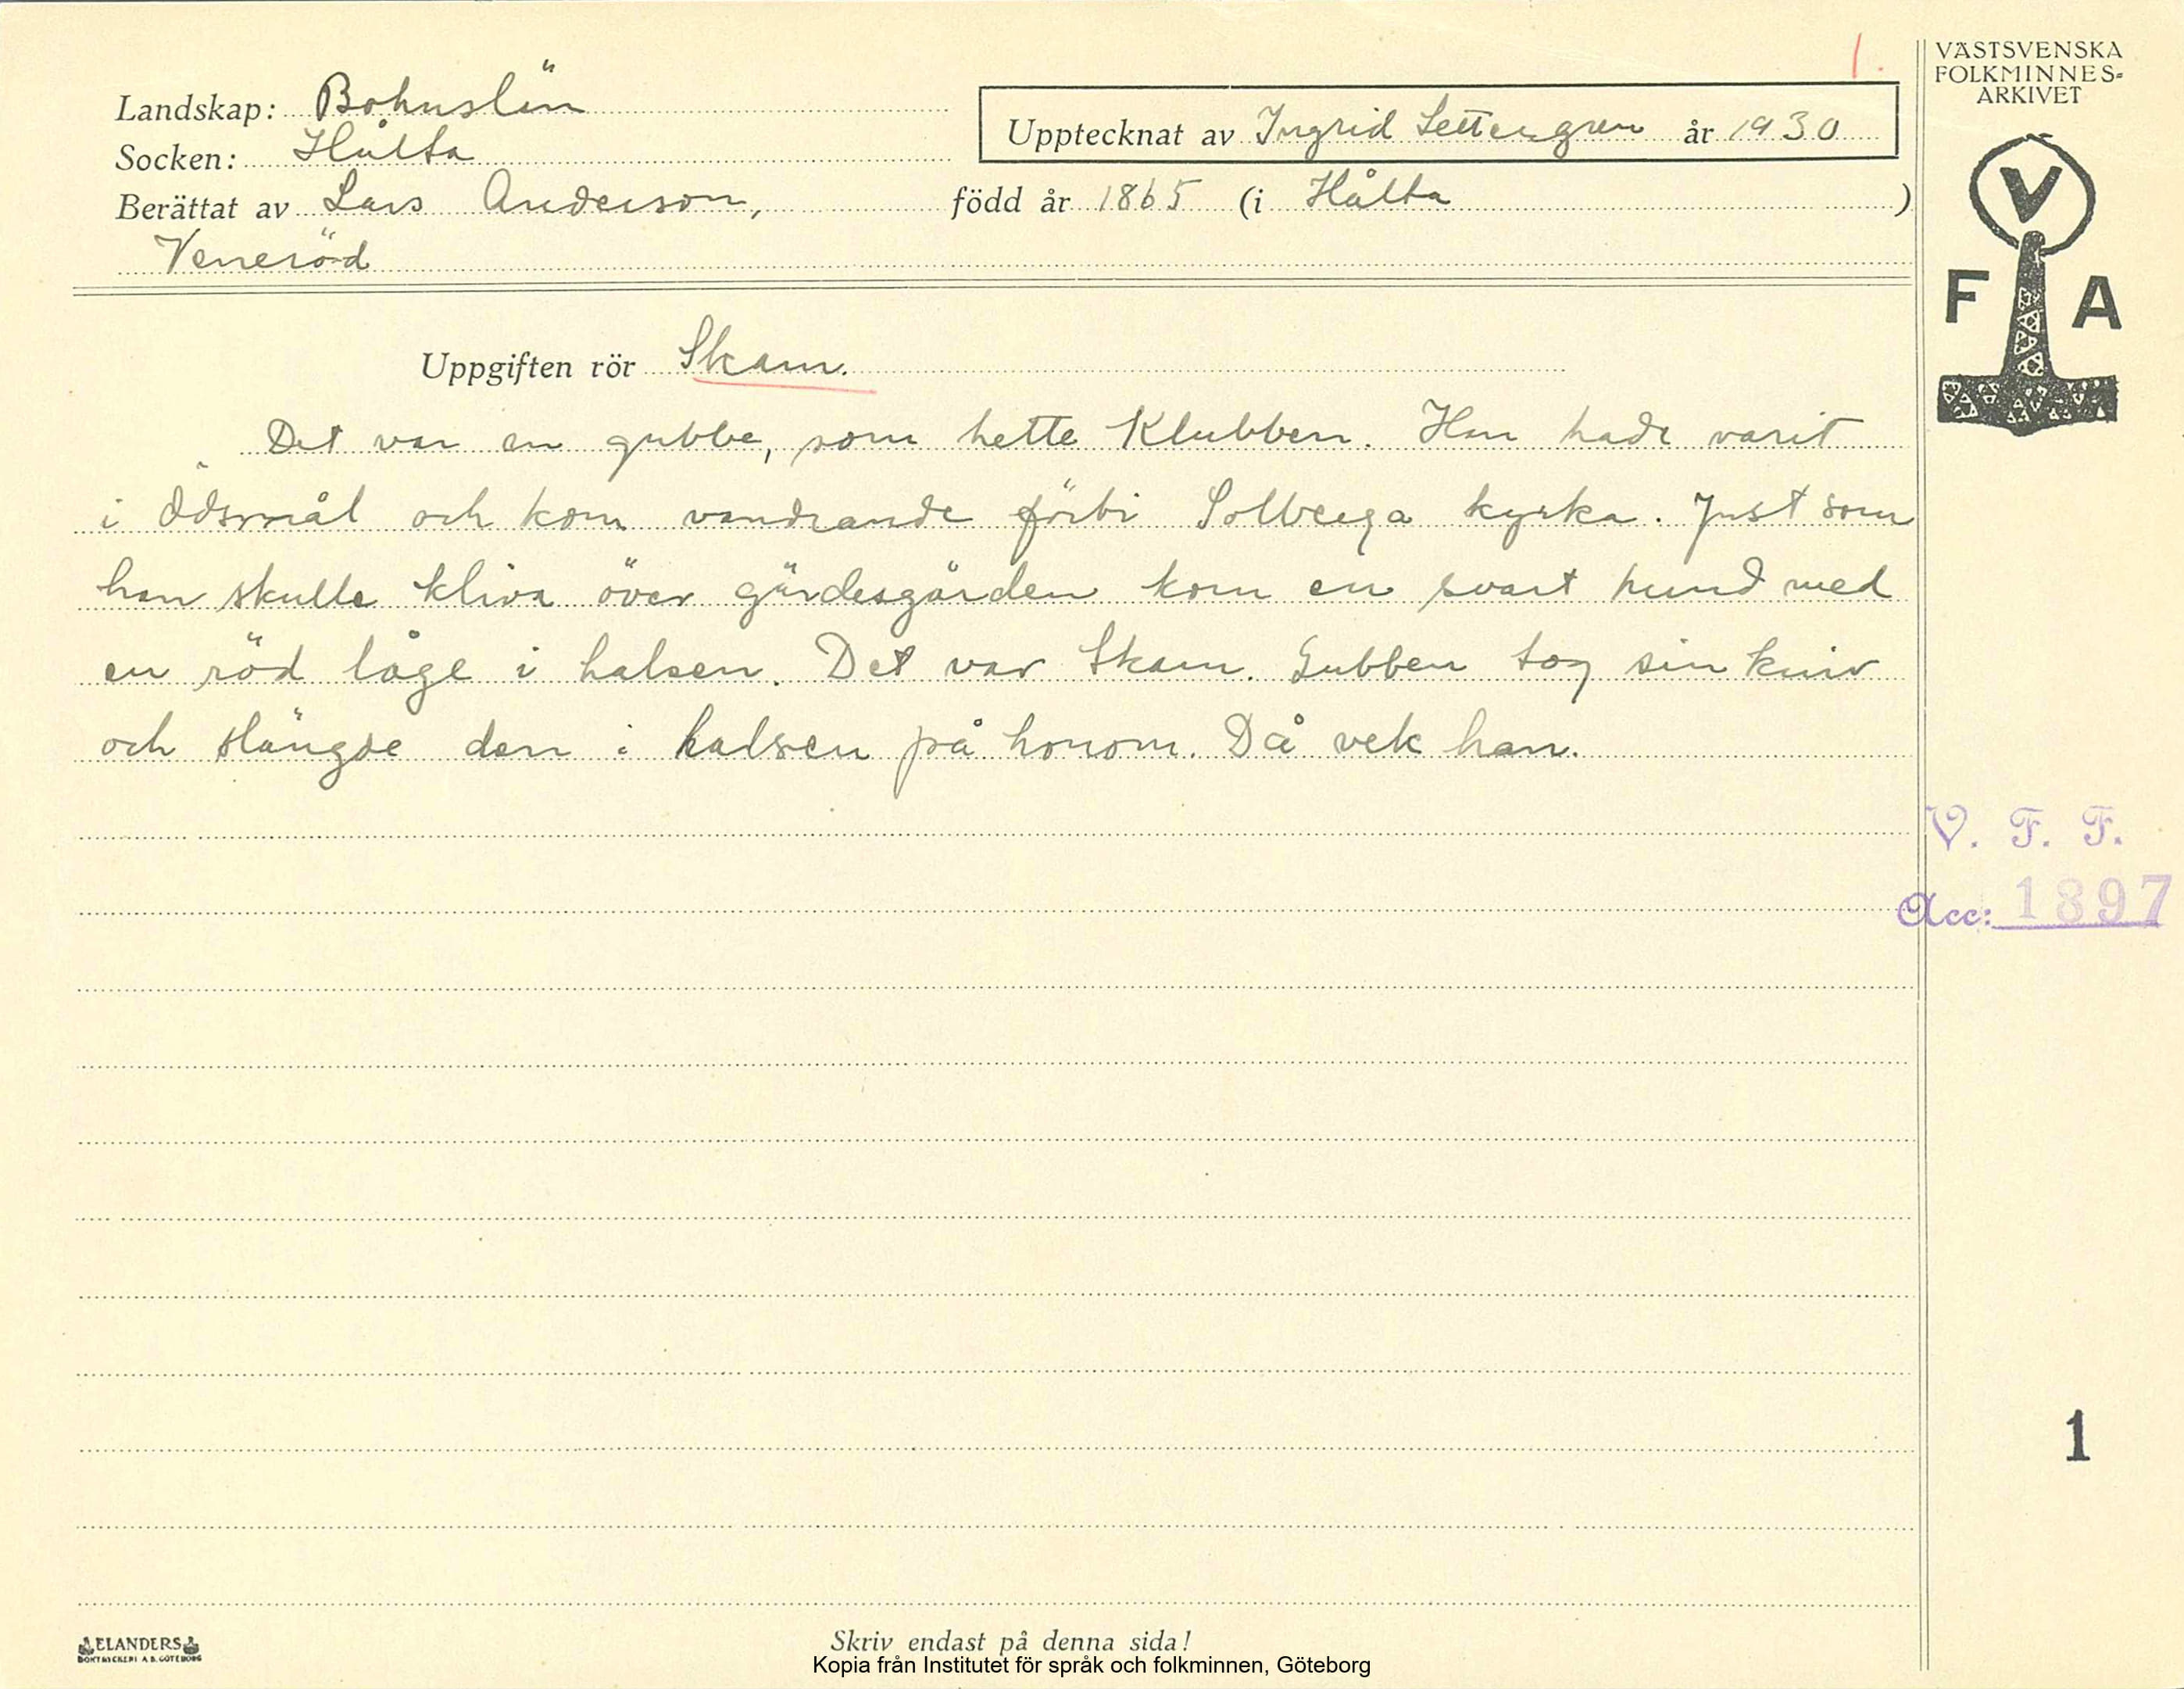 1.
VÄSTSVENSKA
FOLKMINNES-
ARKIVET
V
F A
Landskap: Bohuslän
Socken: Hålta
Upptecknat av Ingrid Settergren år 1930
Berättat av Lars Anderson, född år 1865 (i Hålta )
Veneröd
Uppgiften rör Skam.
Det var en gubbe, som hette Klubben. Han hade varit
i Ödsmål och kom vandrande förbi Solberga kyrka. Just som
han skulle kliva över gärdesgården kom en svart hund med
en röd låge i halsen. Det var Skam. Gubben tog sin kniv
och slängde den i halsen på honom. Då vek han.
V. F. F.
Acc: 1897
1
ELANDERS
BOKTRYCKERI A.B. GÖTEBORG
Skriv endast på denna sida!
Kopia från Institutet för språk och folkminnen, Göteborg